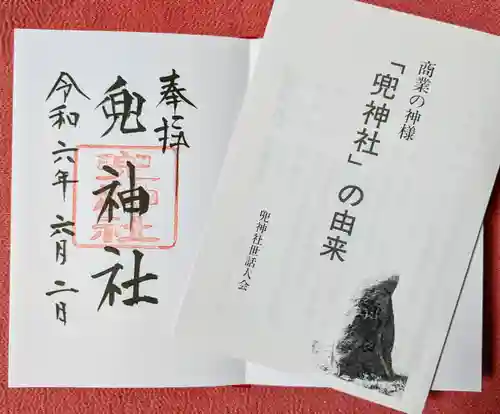 奉拝
兜神社
兜神社
令和六年六月二日
商業の神様
「兜神社」の由来
兜神社世話人会